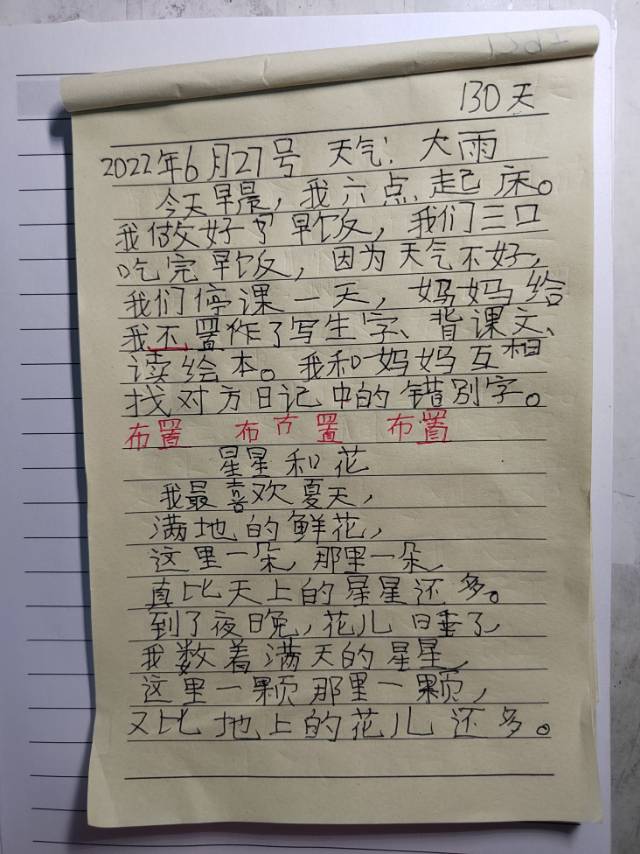 130天
2022年6月27号 天气:大雨
今天早晨,我六点起床。
我做好了早饭,我们三口
吃完早饭,因为天气不好,
我们停课一天,妈妈给
我不置作了写生字、背课文、
读绘本。我和妈妈互相
找对方日记中的错别字。
布置 布布置 布置
星星和花
我最喜欢夏天,
满地的鲜花,
这里一朵,那里一朵,
真比天上的星星还多。
到了夜晚,花儿睡了,
我数着满天的星星,
这里一颗那里一颗,
又比地上的花儿还多。